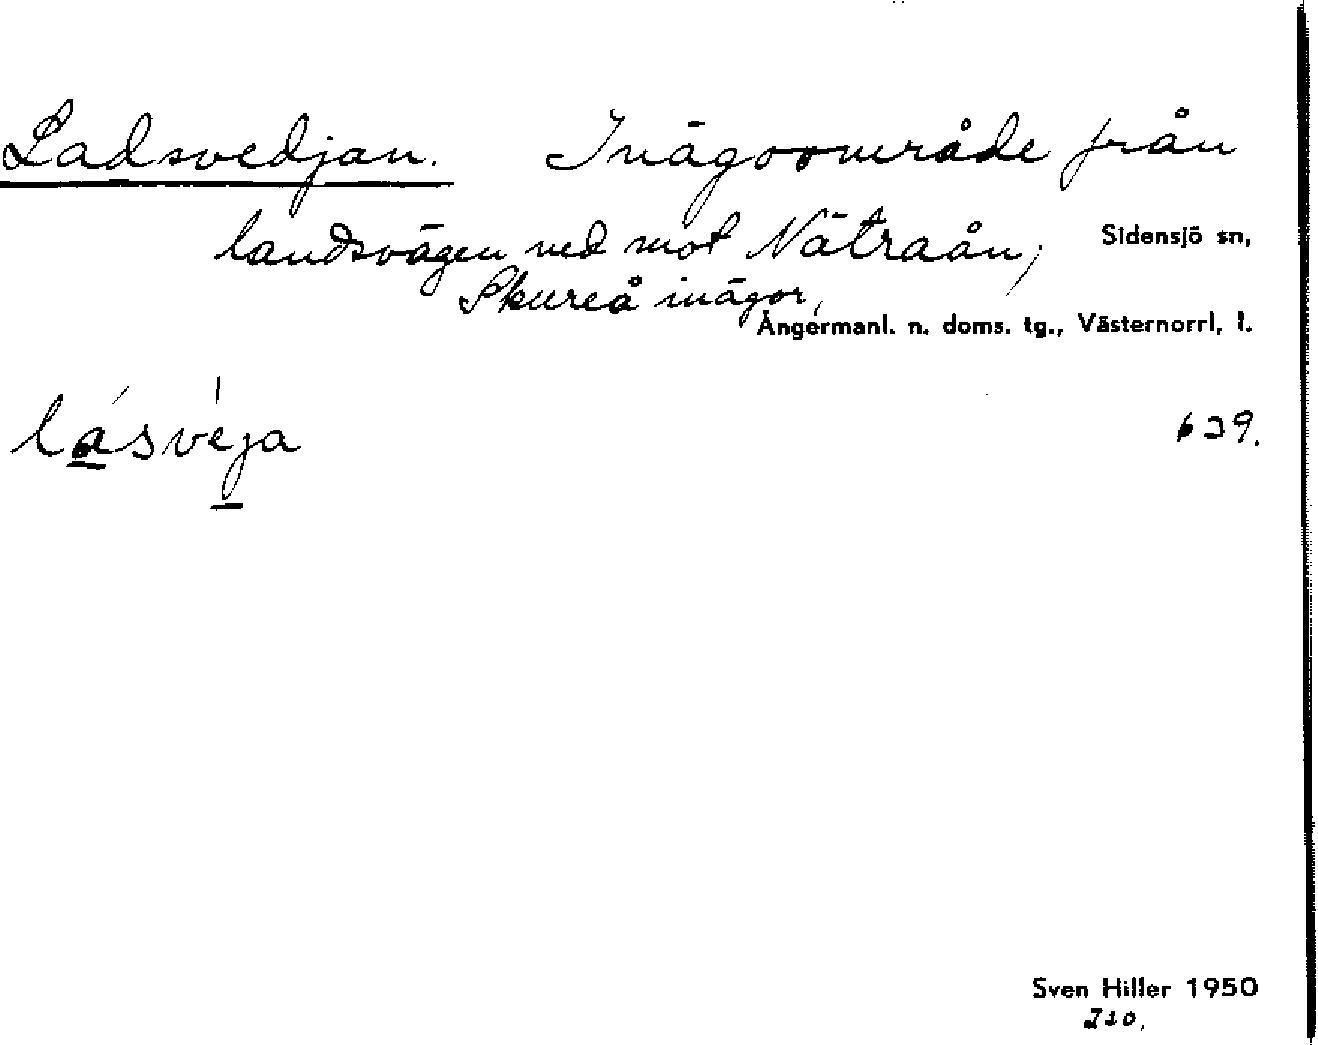 Ladsvedjan. Inägoområde från
landsvägen ned mot Nätraån,
Sidensjö sn,
Skureå inägor,
Ångermanl. n. doms. tg., Västernorrl. l.
lásvéja
629.
Sven Hiller 1950